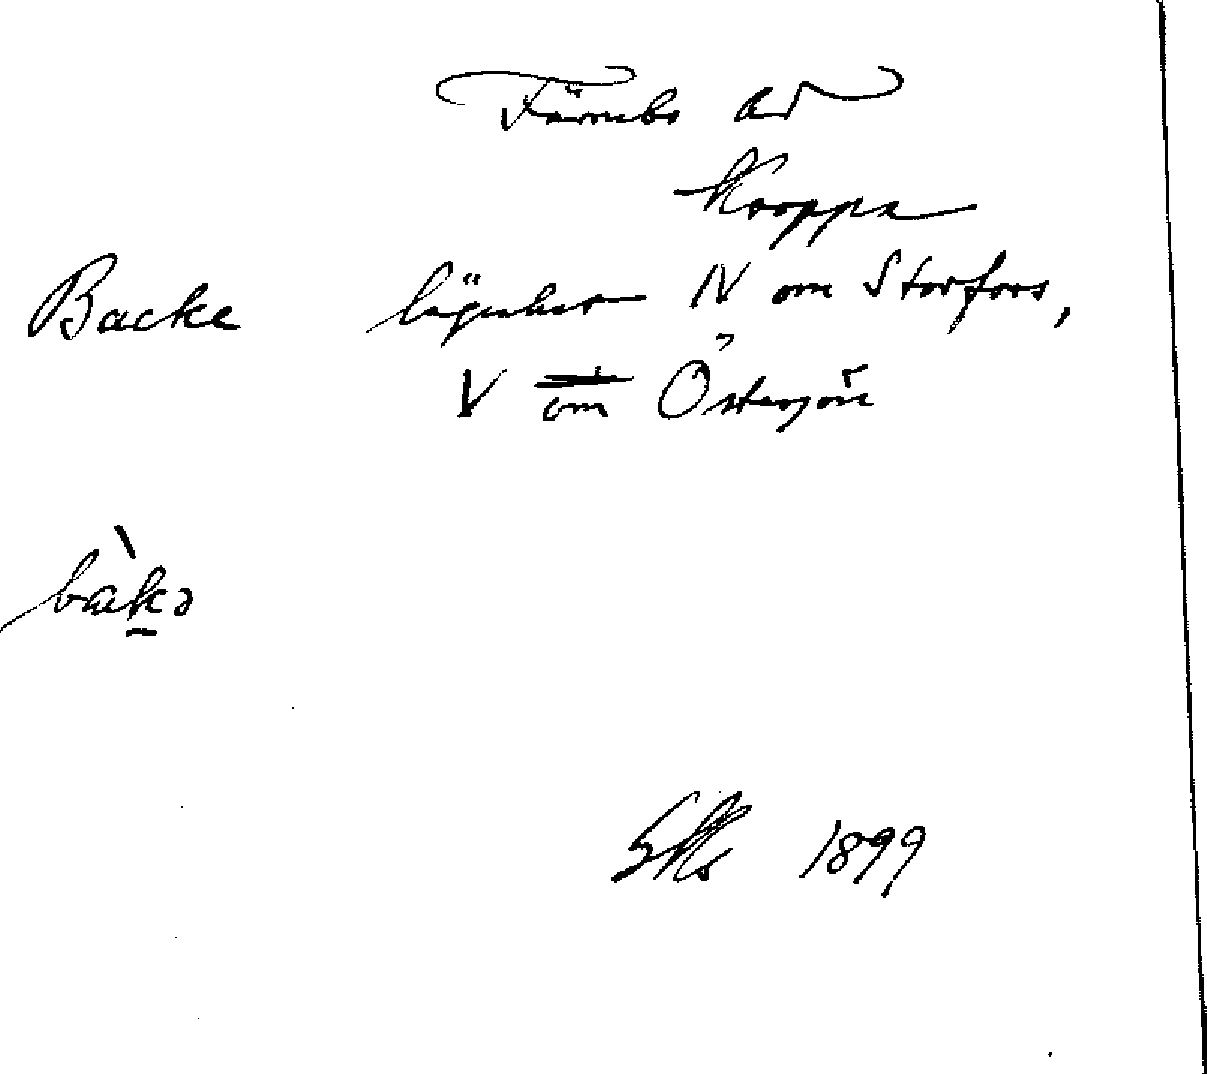 Färnebo ad
Kroppa
Backe lägenhet N om Storfors,
V om Östersjön
bàkə
1899